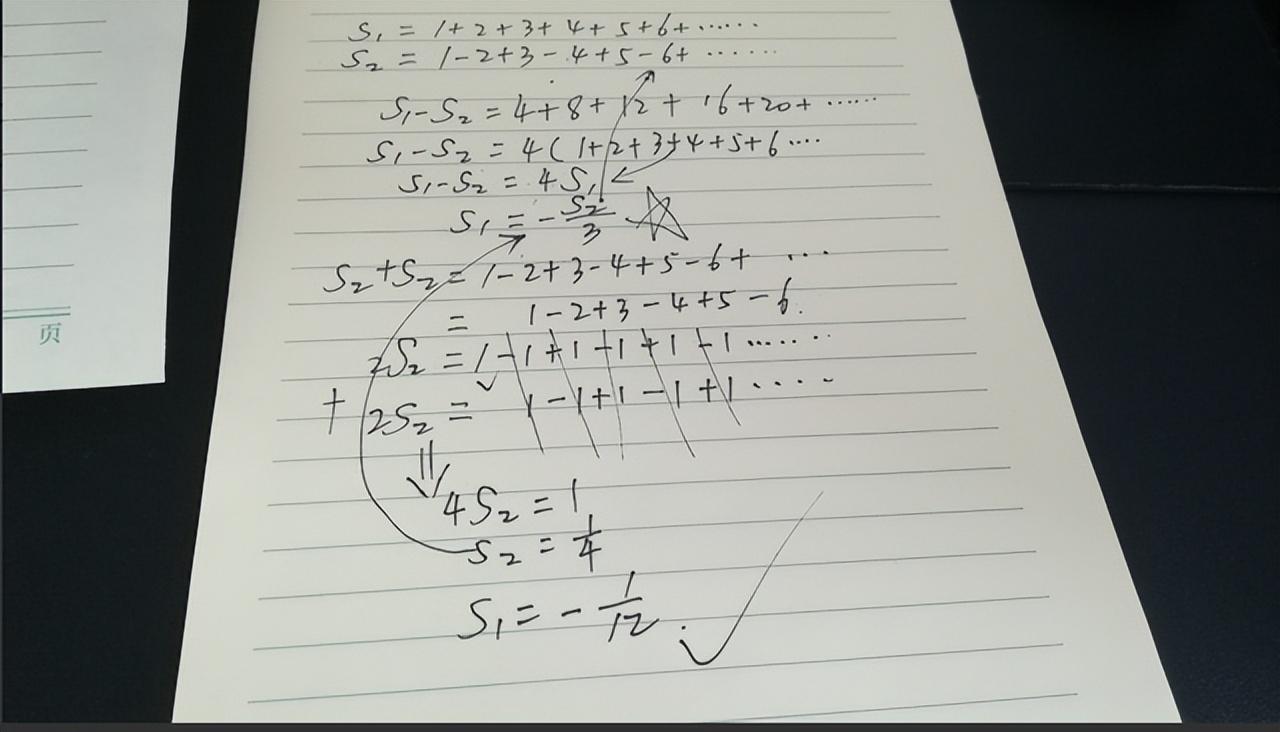 S₁ = 1+2+3+4+5+6+……
S₂ = 1-2+3-4+5-6+……
S₁-S₂ = 4+8+12+16+20+……
S₁-S₂ = 4(1+2+3+4+5+6….
S₁-S₂ = 4S₁
S₁ = -S₂/3
S₂+S₂ = 1-2+3-4+5-6+ …
= 1-2+3-4+5-6.
2S₂ = 1-1+1-1+1-1……
+ 2S₂ = 1-1+1-1+1….
4S₂ = 1
S₂ = 1/4
S₁ = -1/12.
页